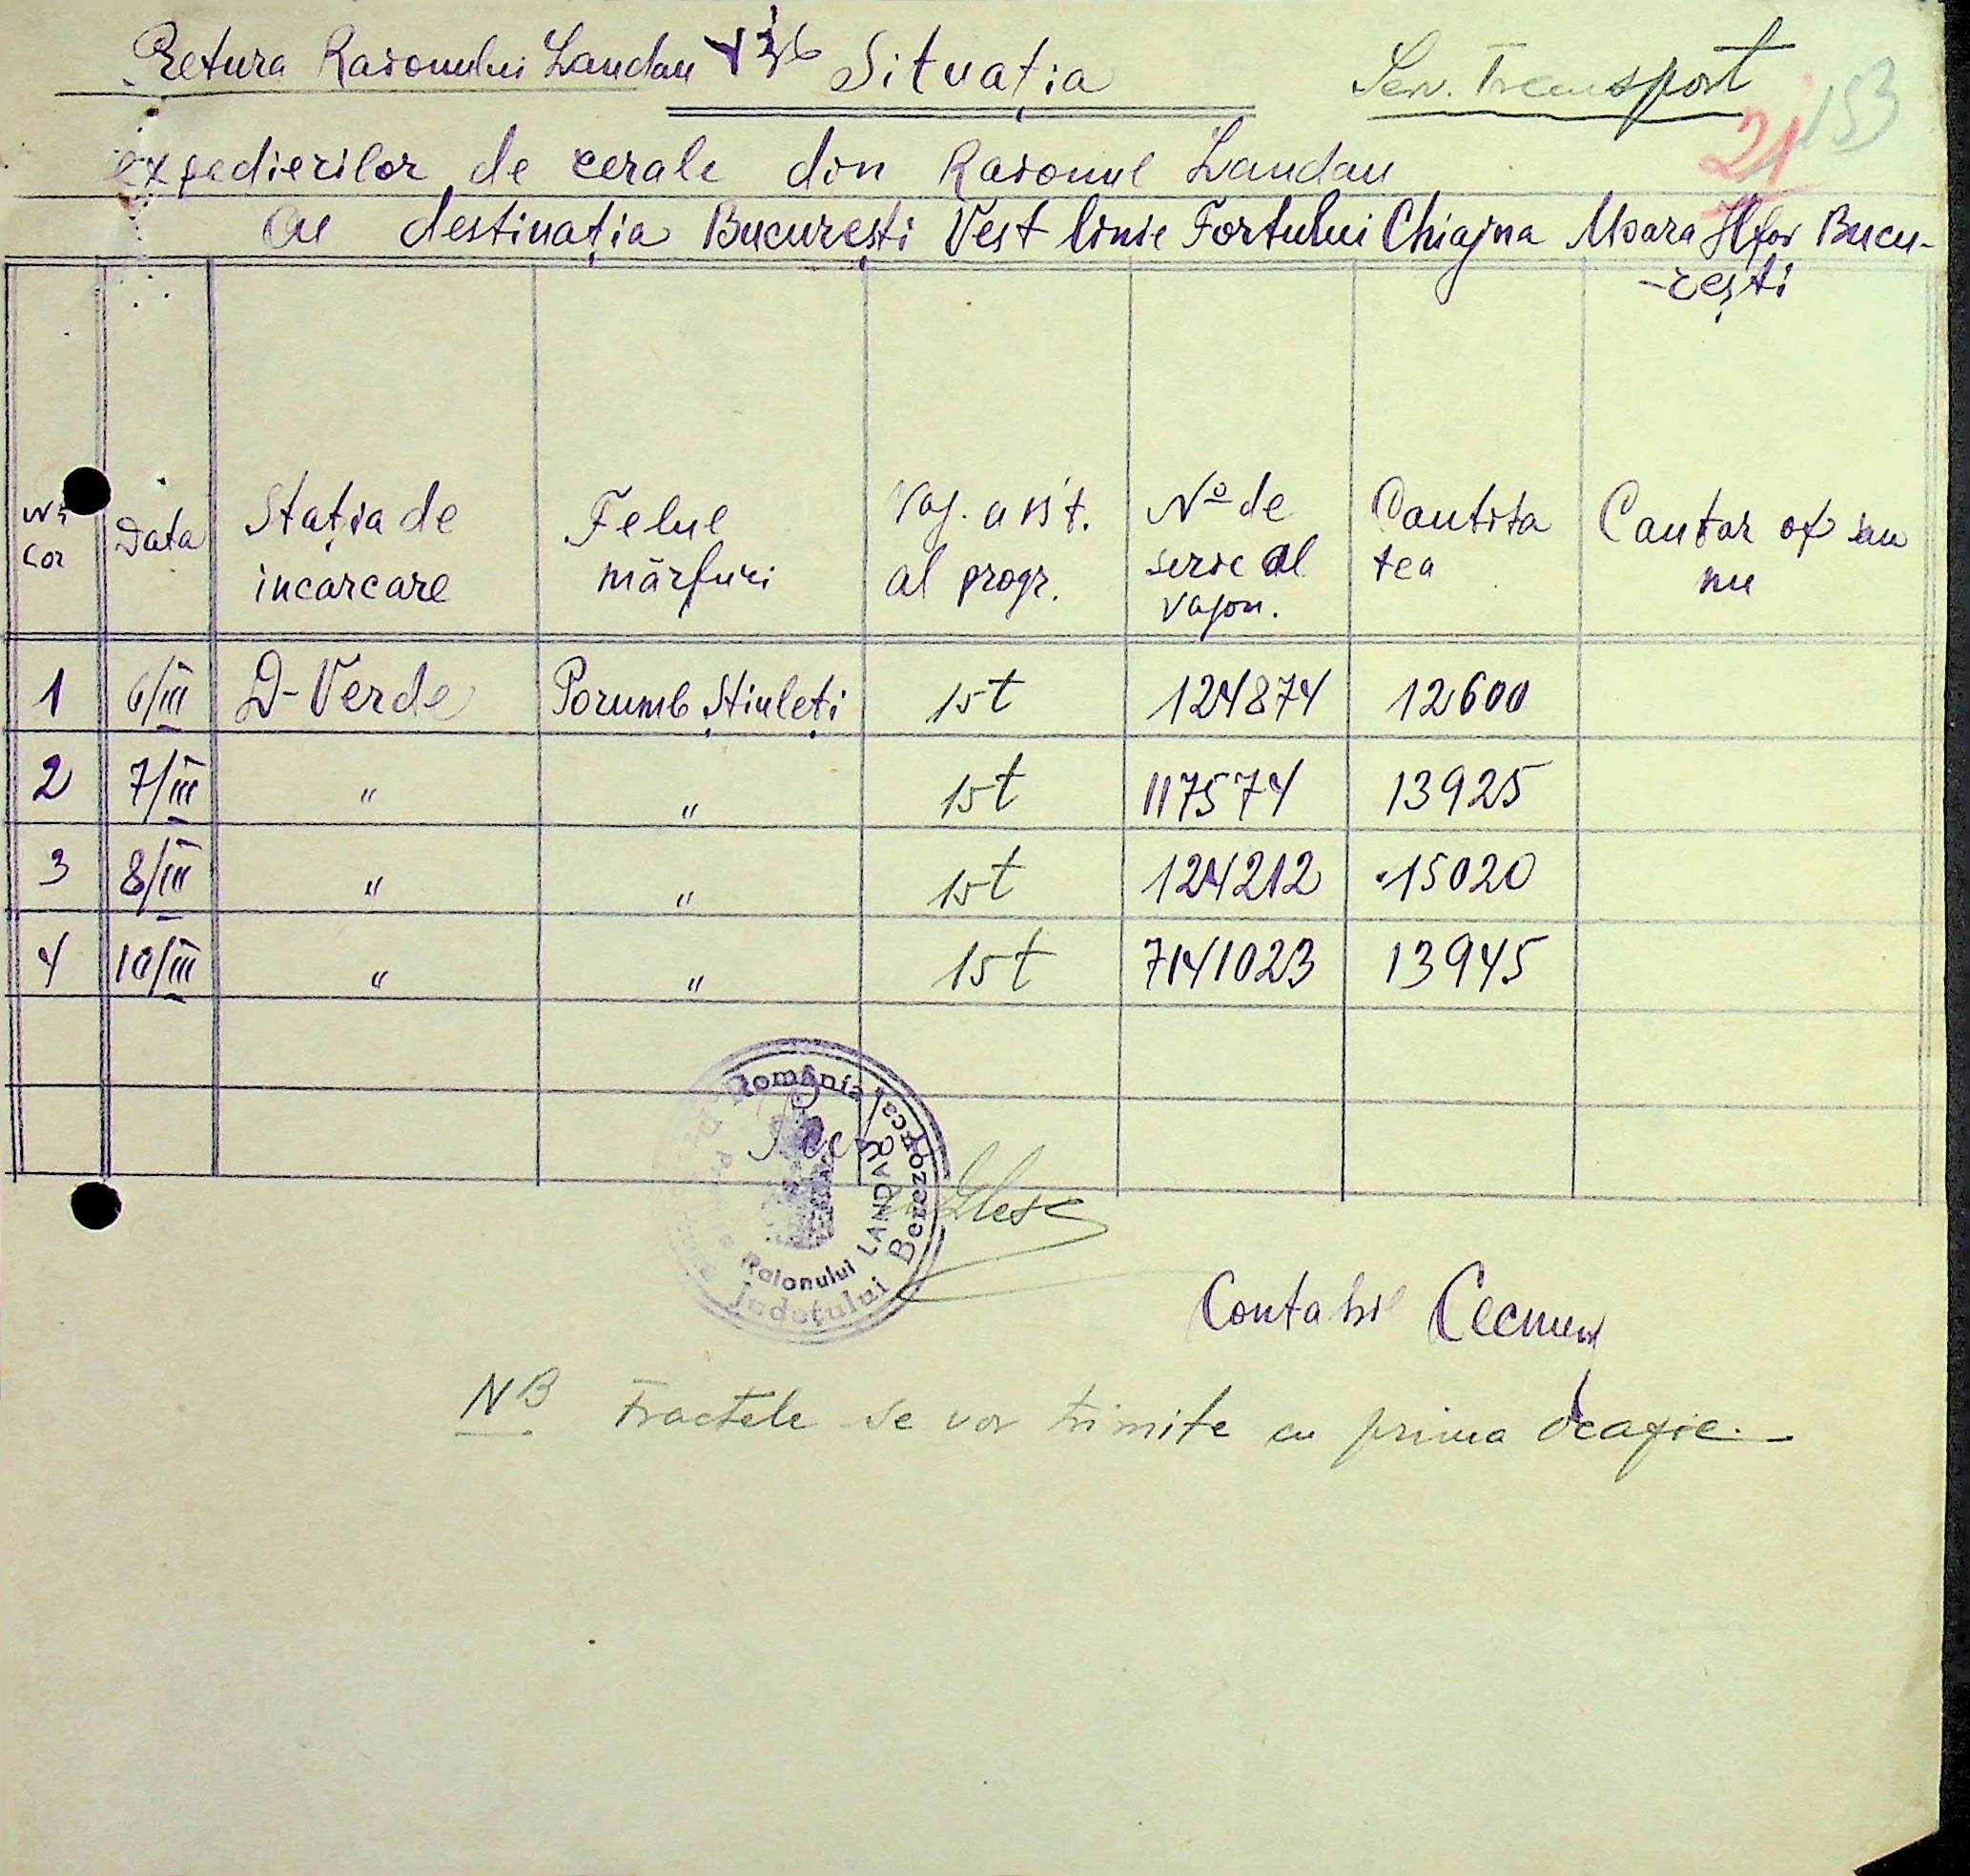 Pretura Raionului Landau Situația Serv. Transport
21 153
expedierilor de cerale din Raionul Landau
cu destinația București Vest linie Fortului Chiajna Moara Ilfov Bucu-
-rești
Nr Cor Data Stația de incarcare Felul mărfuri Vag. a 15 t. al progr. No de serie al vagon. Cantita tea Cantar of sau nu
1 6/III D-Verde Porumb Știuleți 15 t 124874 12600
2 7/III " " 15 t 117574 13925
3 8/III " " 15 t 124212 15020
4 10/III " " 15 t 7141023 13945
România
Raionului LANDAU
Județului Berezovca
Contabil
NB Fractele se vor trimite cu prima ocazie.